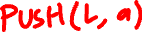 PUSH(L, a)